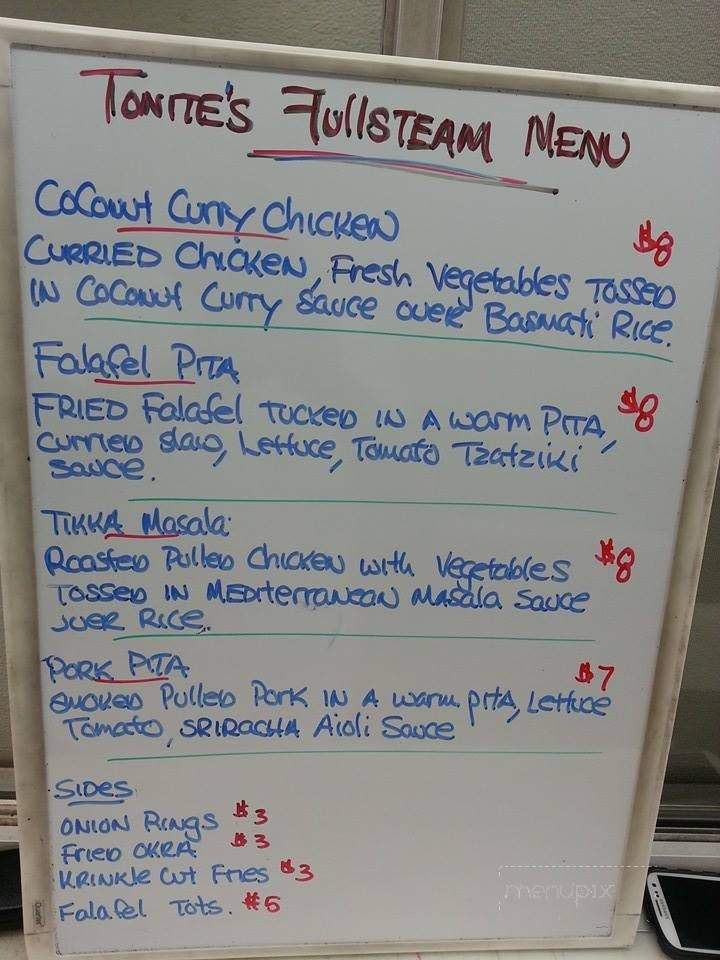 TONITE'S FullSTEAM MENU
CoConut Curry Chicken
$8
CURRIED Chicken, Fresh Vegetables Tossed
IN CoConut Curry Sauce over Basmati Rice.
Falafel PITA
$8
FRIED Falafel TUCKED IN A warm PITA,
curried slaw, Lettuce, Tomato Tzatziki
sauce.
TIKKA Masala:
$8
Roasted Pulled Chicken with Vegetables
Tossed IN MEDiterranean Masala Sauce
over Rice.
PORK PITA
$7
smoked Pulled Pork IN A warm pita, Lettuce
Tomato, SRIRACHA Aioli Sauce
Sides
ONION Rings $3
Fried OKRA $3
Krinkle Cut Fries $3
Falafel Tots.
menupix
Quartet